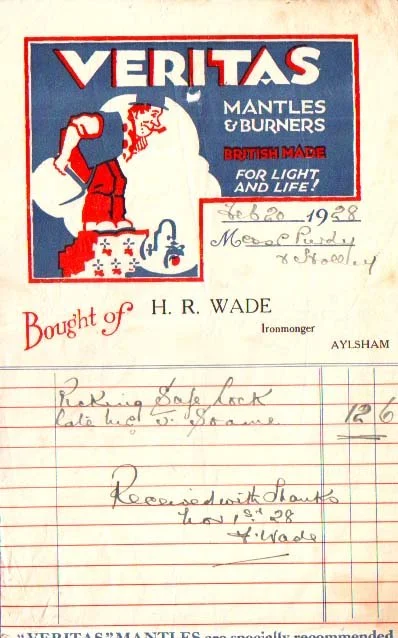 VERITAS
MANTLES
& BURNERS
BRITISH MADE
FOR LIGHT
AND LIFE!
Feb 20 1928
Mess Purdy
& Holley
Bought of H. R. WADE
Ironmonger
AYLSHAM
Picking Safe Lock
late Soame 12 6
Received with thanks
Nov 1st 28
H. Wade
"VERITAS" MANTLES are specially recommended